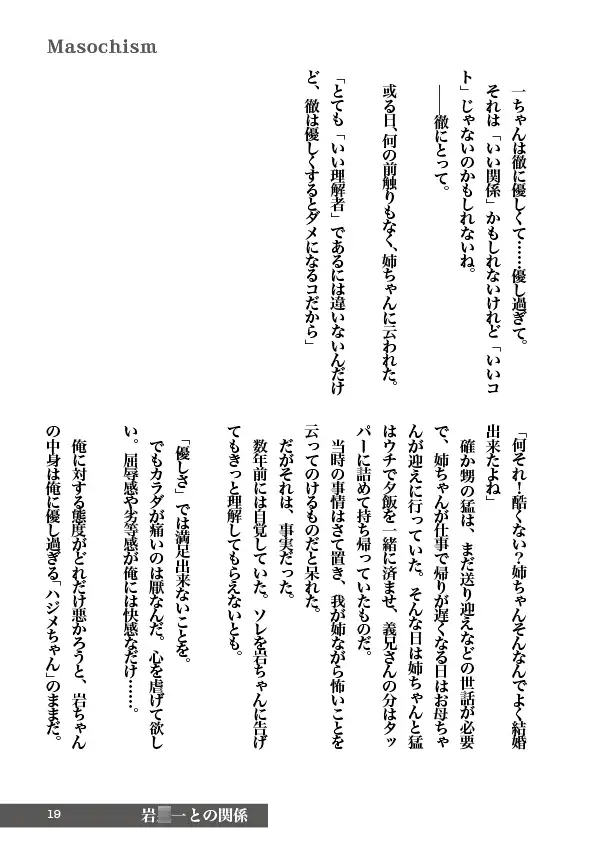 Masochism
一ちゃんは徹に優しくて……優し過ぎて。
それは「いい関係」かもしれないけれど「いいコ
ト」じゃないのかもしれないね。
――徹にとって。
或る日、何の前触りもなく、姉ちゃんに云われた。
「とても「いい理解者」であるには違いないんだけ
ど、徹は優しくするとダメになるコだから」
「何それ!酷くない?姉ちゃんそんなんでよく結婚
出来たよね」
確か甥の猛は、まだ送り迎えなどの世話が必要
で、姉ちゃんが仕事で帰りが遅くなる日はお母ちゃ
んが迎えに行っていた。そんな日は姉ちゃんと猛
はウチで夕飯を一緒に済ませ、義兄さんの分はタッ
パーに詰めて持ち帰っていたものだ。
当時の事情はさて置き、我が姉ながら怖いことを
云ってのけるものだと呆れた。
だがそれは、事実だった。
数年前には自覚していた。ソレを岩ちゃんに告げ
てもきっと理解してもらえないとも。
「優しさ」では満足出来ないことを。
でもカラダが痛いのは厭なんだ。心を虐げて欲し
い。屈辱感や劣等感が俺には快感なだけ……。
俺に対する態度がどれだけ悪かろうと、岩ちゃん
の中身は俺に優し過ぎる「ハジメちゃん」のままだ。
19
岩 一との関係